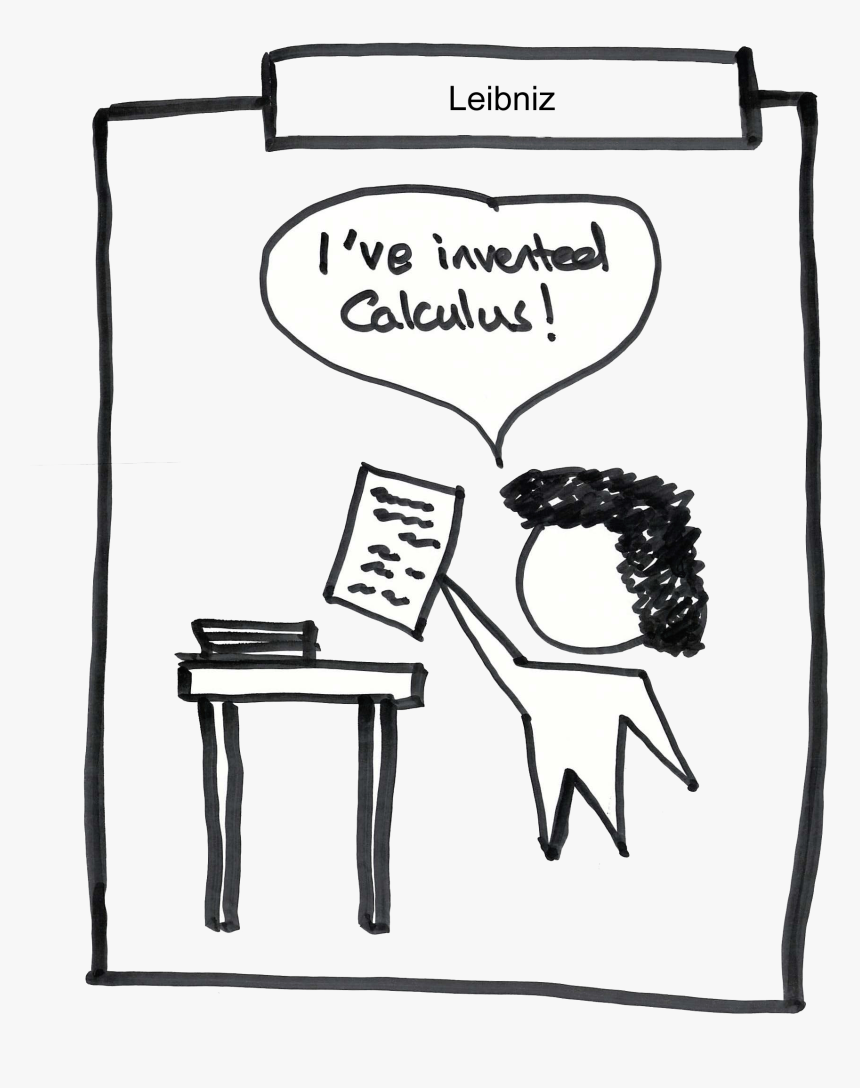 Leibniz
I've invented
Calculus!